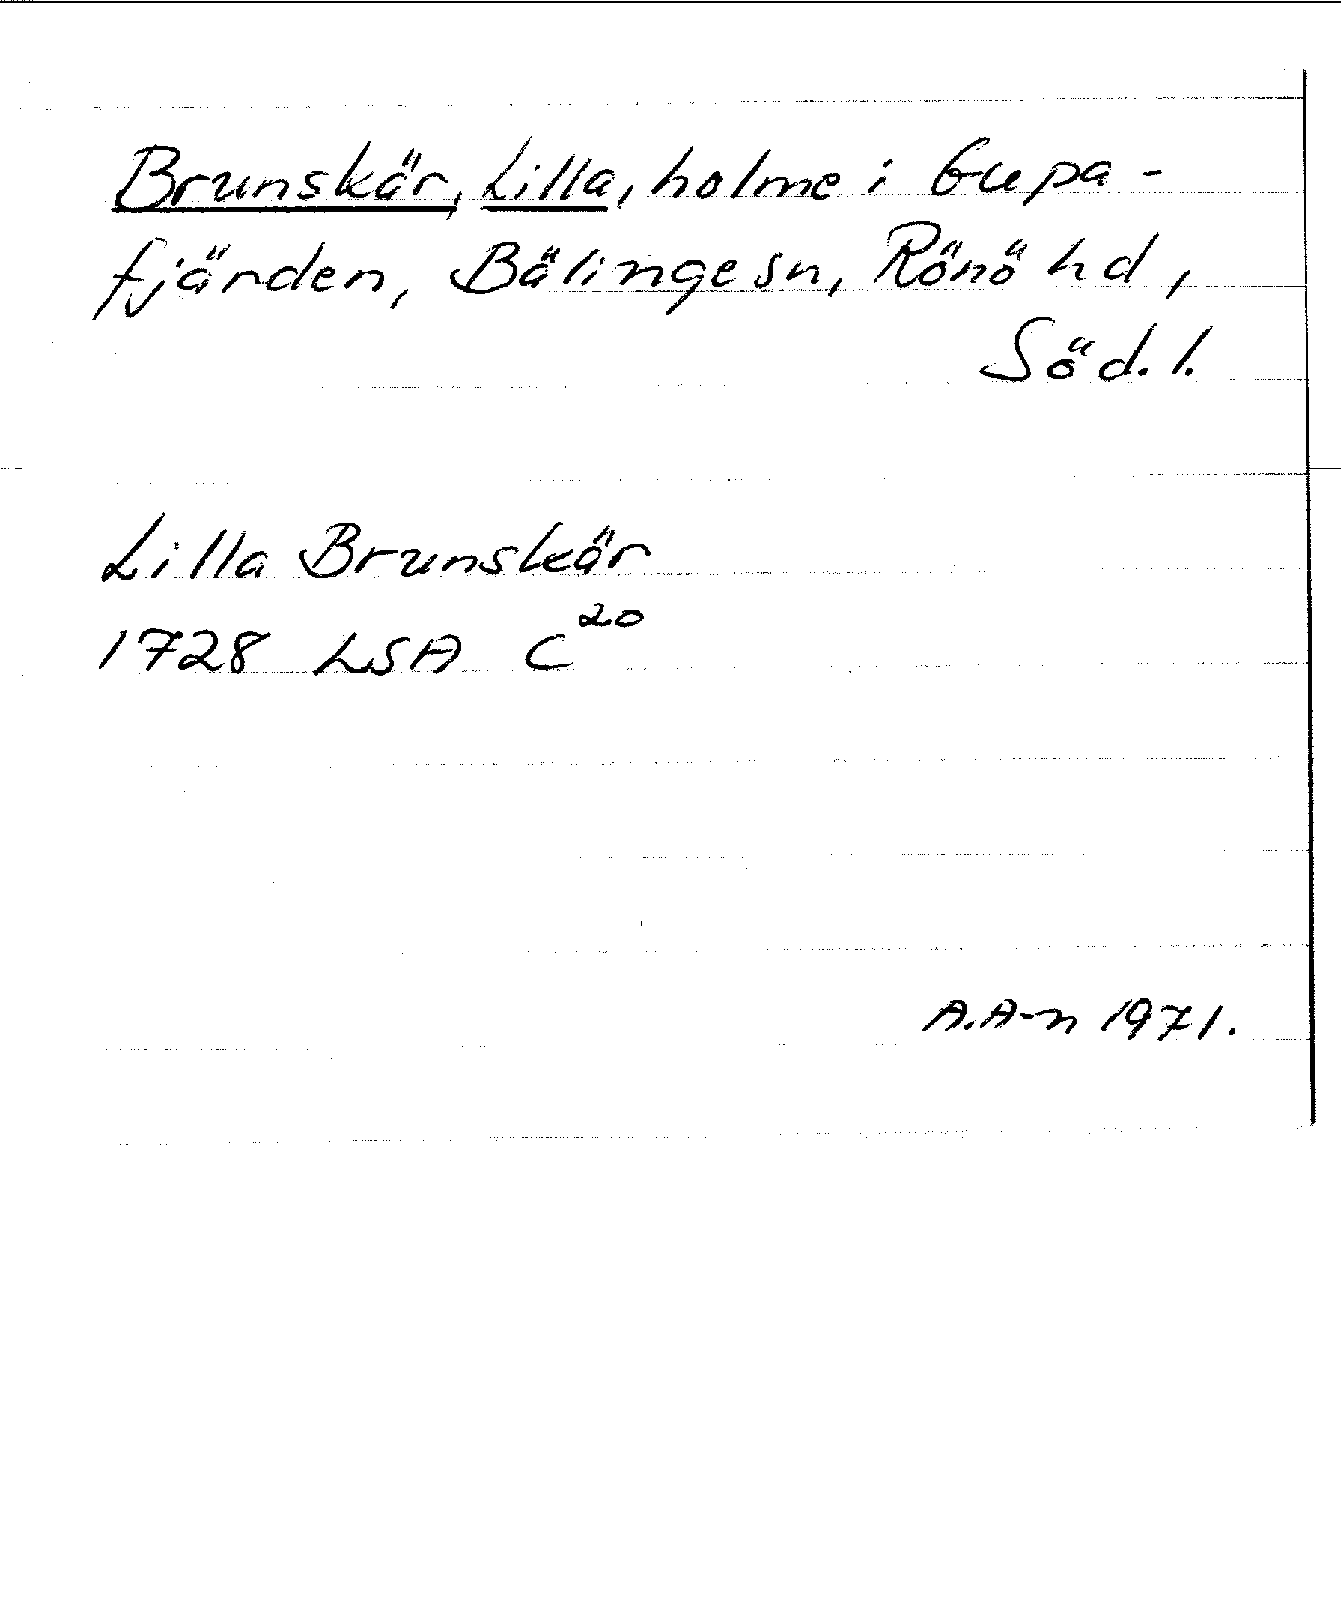 Brunskär, Lilla, holme i Gupa-
fjärden, Bälinge sn, Rönö hd,
Söd.l.
Lilla Brunskär
1728 LSA C20
A.A-n 1971.